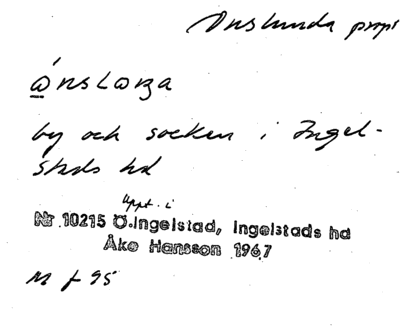 Onslunda propr
by och socken i Ingel-
stads hd
Uppt. i
Nr 10215 Ö.Ingelstad, Ingelstads hd
Åke Hansson 1967
M f 95